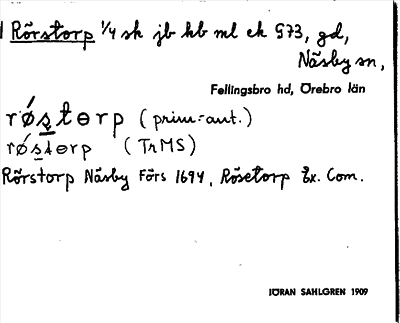 Rörstorp 1/4 sk jb kb ml ek 573, gd,
Näsby sn,
Fellingsbro hd, Örebro län
røstɵrp (prim.-aut.)
røstɵrp (TrMS)
Rörstorp Näsby Förs 1694, Rösetorp Ex. Com.
JÖRAN SAHLGREN 1909